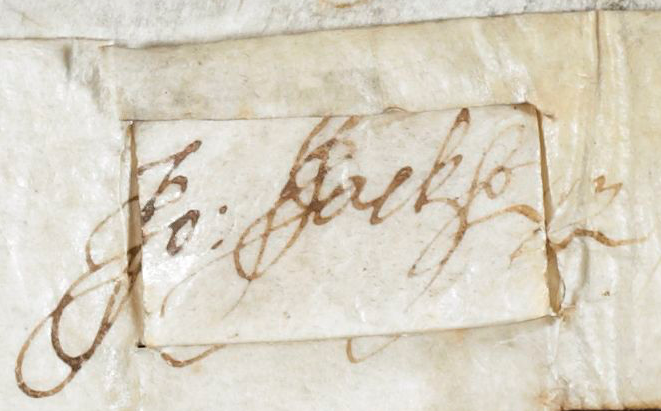 Jo: Jackson